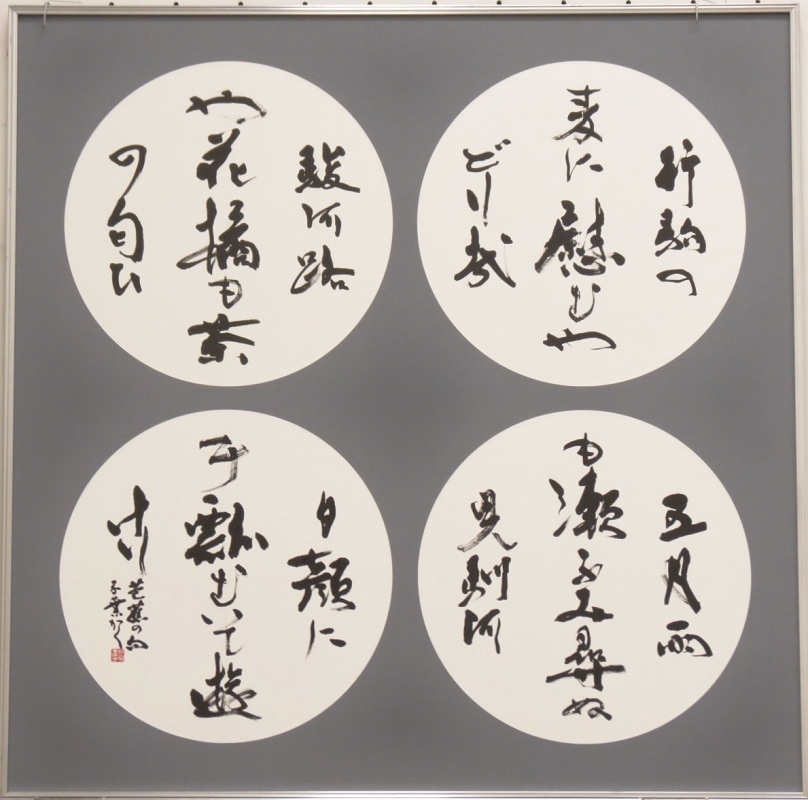 行駒の
麦に慰むや
どり哉
駿河路
や花橘も茶
の匂ひ
五月雨
も瀬ふみ尋ぬ
見馴河
夕顔に
干瓢むいて遊
けり
芭蕉の句
子葉かく